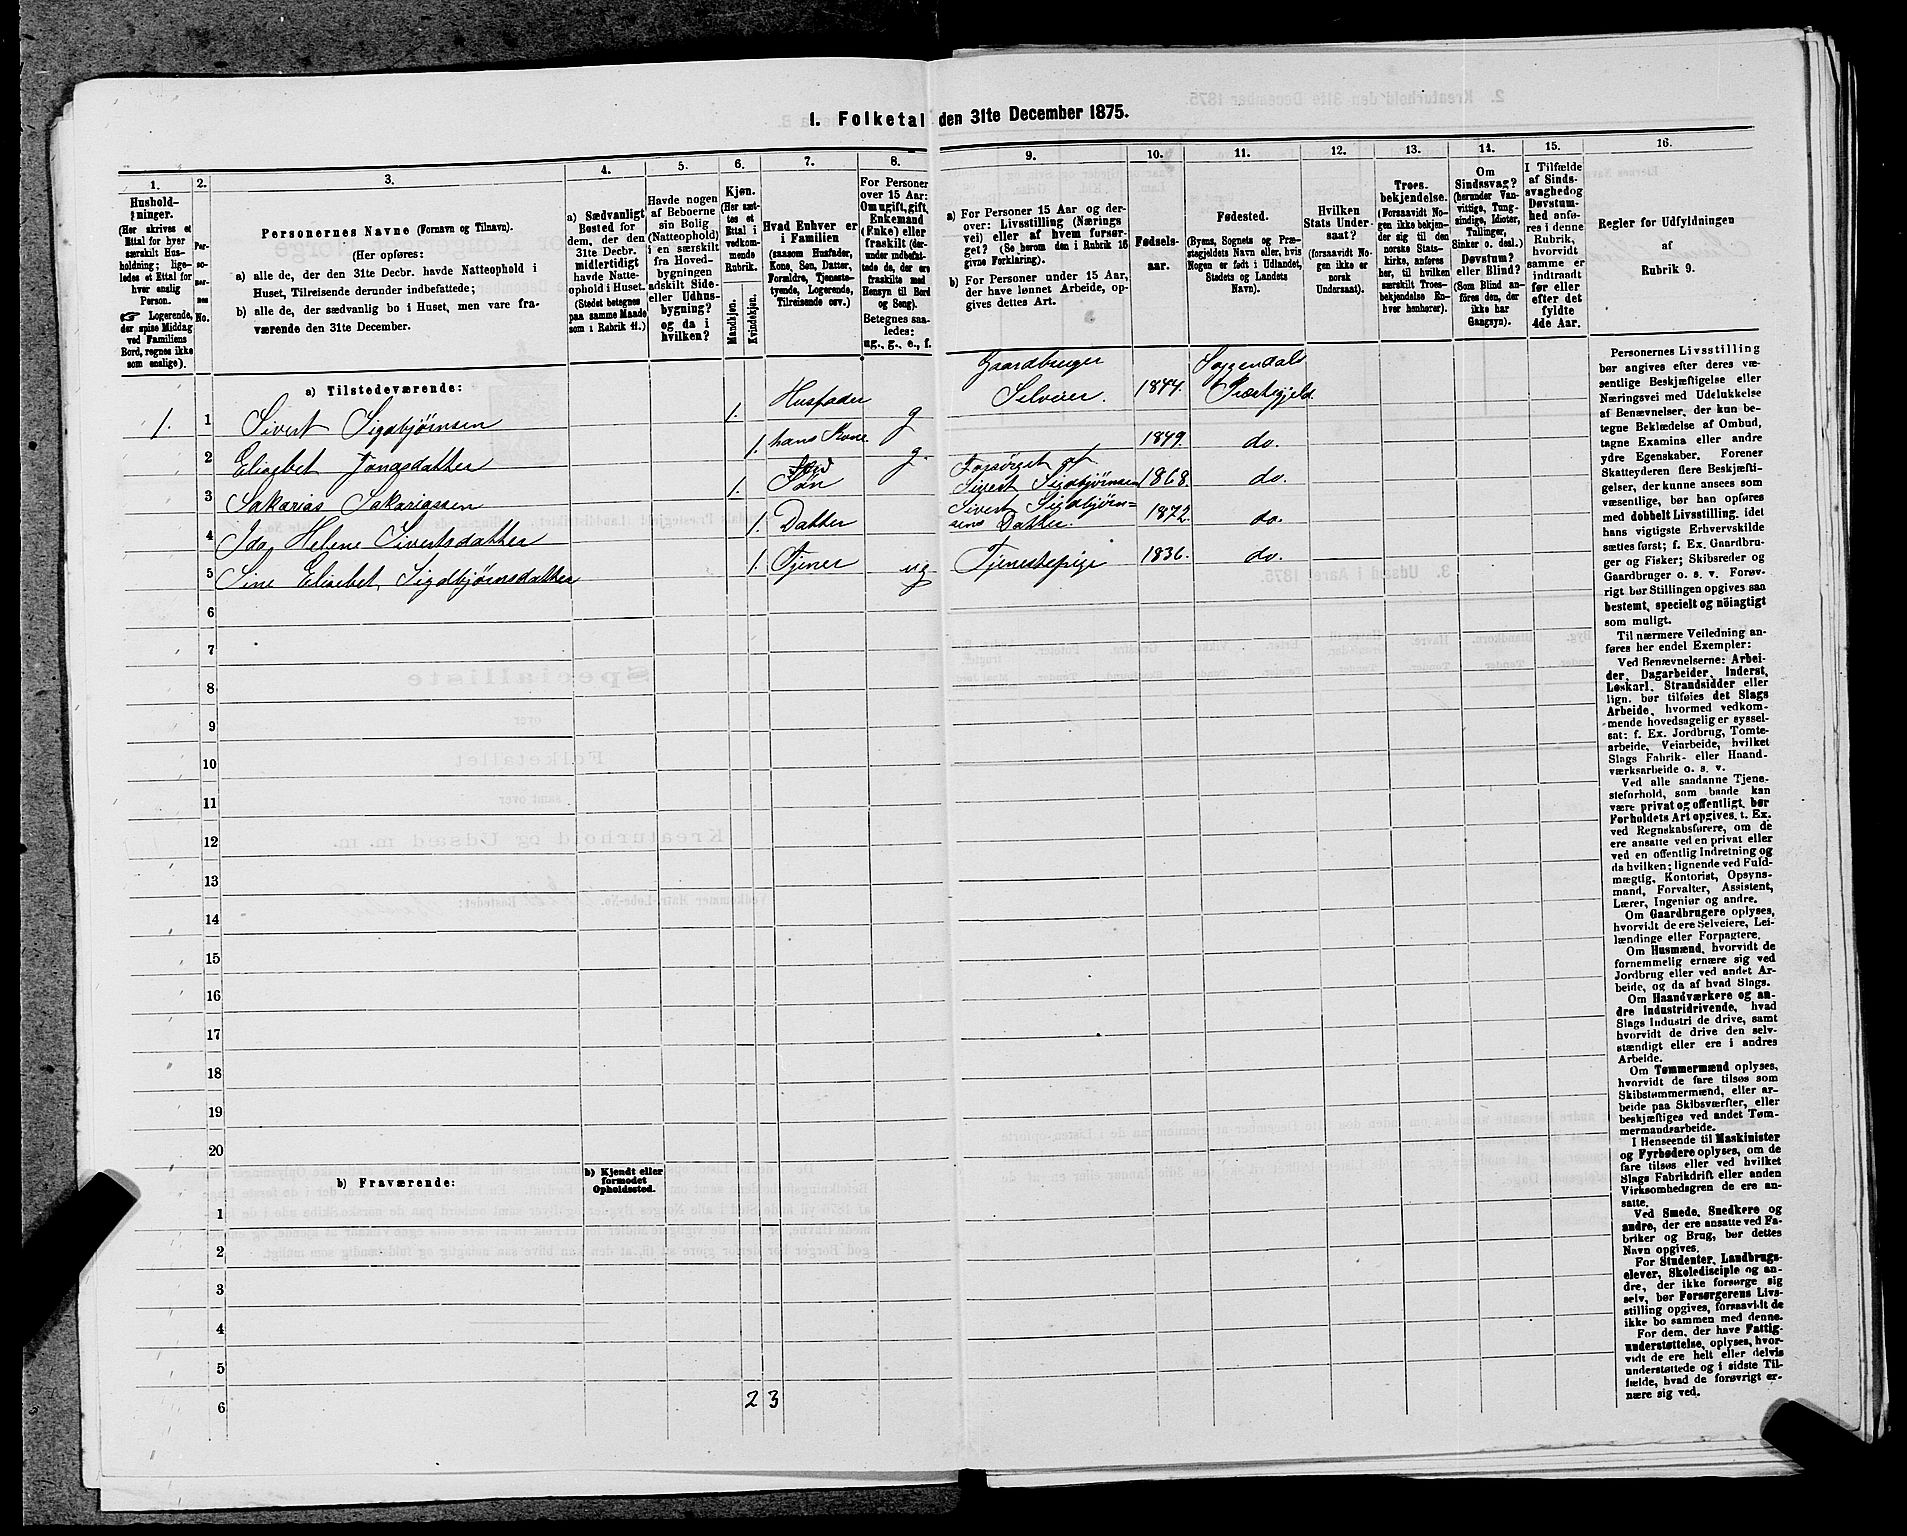 1. Folketal den 31te December 1875.
1.
Hushold-
ninger.
(Her skrives et
Ettal for hver
særskilt Hus-
holdning; lige-
ledes et Ettal for
hver enslig
Person.
☞ Logerende,
der spise Middag
ved Familiens
Bord, regnes ikke
som enslige).
2.
Per-
so-
ner-
nes
No.
3.
Personernes Navne (Fornavn og Tilnavn).
(Her opføres:
a) alle de, der den 31te Decbr. havde Natteophold i
Huset, Tilreisende derunder indbefattede;
b) alle de, der sædvanlig bo i Huset, men vare fra-
værende den 31te December.
4.
a) Sædvanligt
Bosted for
dem, der den
31te Decbr.
midlertidigt
havde Natte-
ophold i Huset.
(Stedet betegnes
paa samme Maade
som i Rubrik 11.)
5.
Havde nogen
af Beboerne
sin Bolig
(Natteophold)
i en særskilt
fra Hoved-
bygningen
adskilt Side-
eller Udhus-
bygning?
og da i
hvilken?
6.
Kjøn.
(Her sæt-
tes et
Ettal i
vedkom-
mende
Rubrik.
Mandkjøn.
Kvindekjøn.
7.
Hvad Enhver er
i Familien
(saasom Husfader,
Kone, Søn, Datter,
Forældre, Tjeneste-
tyende, Logerende,
Tilreisende osv.)
8.
For Personer
over 15 Aar:
Om ugift, gift,
Enkemand
(Enke) eller
fraskilt (der-
under indbefat-
tede de, der ere
fraskilte med
Hensyn til Bord
og Seng).
Betegnes saa-
ledes:
ug., g., e., f.
9.
a) For Personer 15 Aar og der-
over: Livsstilling (Nærings-
vei) eller af hvem forsør-
get? (Se herom den i Rubrik 16
givne Forklaring).
b) For Personer under 15 Aar,
der have lønnet Arbeide, op-
gives dettes Art.
10.
Fødsels-
aar.
11.
Fødested.
(Byens, Sognets og Præ-
stegjeldets Navn eller, hvis
Nogen er født i Udlandet,
Stedets og Landets
Navn).
12.
Hvilken
Stats Under-
saat?
(forsaavidt No-
gen ikke er
norsk
Undersaat).
13.
Troes-
bekjendelse.
(Forsaavidt No-
gen ikke bekjen-
der sig til den
norske Stats-
kirke, anføres
her, til hvilken
særskilt Troes-
bekjendelse En-
hver henhører).
14.
Om
Sindssvag?
(herunder Van-
vittige, Tung-
sindige, Idioter,
Tullinger,
Sinker o. desl.)
Døvstum?
eller Blind?
(Som Blind an-
føres den, der
ikke har
Gangsyn).
15.
I Tilfælde
af Sinds-
svaghed og
Døvstum-
hed anfø-
res i denne
Rubrik,
hvorvidt
samme er
indtraadt
før eller
efter det
fyldte
4de Aar.
16.
Regler for Udfyldningen
af
Rubrik 9.
a) Tilstedeværende:
1. 1 Sivert Sigbjørnsen 1. Husfader g Gaardbruger Selveier. 1844. Soggendals Præstegjeld.
2 Elisebet Jonasdatter 1. hans Kone g. 1849. do.
3 Sakarias Sakariassen 1. Søn Forsørget af Sivert Sigbjørnsen 1868. do.
4 Ida Helene Sivertsdatter 1. Datter Sivert Sigbjørn=sens Datter. 1872. do.
5 Sine Elisebet Sigbjørnsdatter 1. Tjener ug Tjenestepige 1836. do.
6
7
8
9
10
11
12
13
14
15
16
17
18
19
20
b) Fraværende:
b) Kjendt eller
formodet
Opholdssted.
1
2
3
4
5
6
2 3
Personernes Livsstilling
bør angives efter deres væ-
sentlige Beskjæftigelse eller
Næringsvei med Udelukkelse
af Benævnelser, der kun be-
tegne Beklædelse af Ombud,
tagne Examina eller andre
ydre Egenskaber. Forener
Skatteyderen flere Beskjæfti-
gelser, der kunne ansees som
væsentlige, bør han opføres
med dobbelt Livsstilling, idet
hans vigtigste Erhvervskilde
sættes først; f. Ex. Gaardbru-
ger og Fisker; Skibsreder og
Gaardbruger o. s. v. Forøv-
rigt bør Stillingen opgives saa
bestemt, specielt og nöiagtigt
som muligt.
Til nærmere Veiledning an-
føres her endel Exempler:
Ved Benævnelserne: Arbei-
der, Dagarbeider, Inderst,
Løskarl, Strandsidder eller
lign. bør tilføies det Slags
Arbeide, hvormed vedkom-
mende hovedsagelig er syssel-
sat: f. Ex. Jordbrug, Tomte-
arbeide, Veiarbeide, hvilket
Slags Fabrik- eller Haand-
værksarbeide o. s. v.
Ved alle saadanne Tjene-
steforhold, som baade kan
være privat og offentligt, bør
Forholdets Art opgives, t. Ex.
ved Regnskabsførere, om de
ere ansatte ved en privat eller
ved en offentlig Indretning og
da hvilken; lignende ved Fuld-
mægtig, Kontorist, Opsyns-
mand, Forvalter, Assistent,
Lærer, Ingeniør og andre.
Om Gaardbrugere oplyses,
hvorvidt de ere Selveiere, Lei-
lændinge eller Forpagtere.
Om Husmænd, hvorvidt de
fornemmelig ernære sig ved
Jordbrug eller ved andet Ar-
beide, og da af hvad Slags.
Om Haandværkere og an-
dre Industridrivende, hvad
Slags Industri de drive, samt
hvorvidt de drive den selv-
stændigt eller ere i andres
Arbeide.
Om Tømmermænd oplyses,
hvorvidt de fare tilsøs som
Skibstømmermænd, eller ar-
beide paa Skibsværfter, eller
beskjæftiges ved andet Tøm-
mermandsarbeide.
I Henseende til Maskinister
og Fyrbødere oplyses, om de
fare tilsøs eller ved hvilket
Slags Fabrikdrift eller anden
Virksomhedsgren de ere an-
satte.
Ved Smede, Snedkere og
andre, der ere ansatte ved Fa-
briker og Brug, bør dettes
Navn opgives.
For Studenter, Landbrugs-
elever, Skoledisciple og an-
dre, der ikke forsørge sig
selv, bør Forsørgerens Livs-
stilling opgives, forsaavidt de
ikke bo sammen med denne.
For dem, der have Fattig-
understøttelse, oplyses, hvor-
vidt de ere helt eller delvis
understøttede og i sidste Til-
fælde, hvad de forøvrigt er-
nære sig ved.